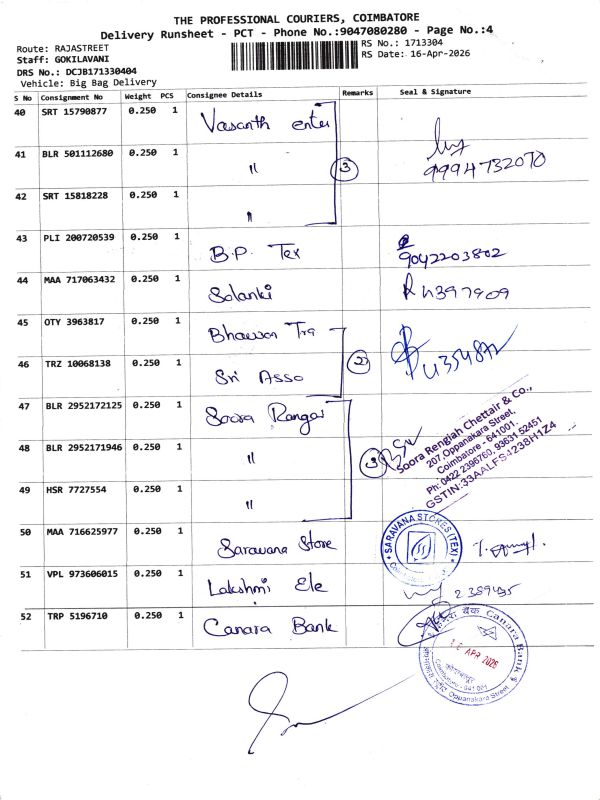 THE PROFESSIONAL COURIERS, COIMBATORE
Delivery Runsheet - PCT - Phone No.:9047080280 - Page No.:4
Route: RAJASTREET
Staff: GOKILAVANI
DRS No.: DCJB171330404
Vehicle: Big Bag Delivery
RS No.: 1713304
RS Date: 16-Apr-2026
S No Consignment No Weight PCS Consignee Details Remarks Seal & Signature
40 SRT 15790877 0.250 1 Vasanth enter
41 BLR 501112680 0.250 1 " 3 9994732070
42 SRT 15818228 0.250 1 "
43 PLI 200720539 0.250 1 B.P. Tex 9042203802
44 MAA 717063432 0.250 1 Solanki
45 OTY 3963817 0.250 1 Bhawan Tra
46 TRZ 10068138 0.250 1 Sri Asso 2
47 BLR 2952172125 0.250 1 Soora Rangai
48 BLR 2952171946 0.250 1 " 3
49 HSR 7727554 0.250 1 "
Soora Rengiah Chettair & Co.,
207, Oppanakara Street,
Coimbatore - 641001.
Ph: 0422 2396760, 93631 52451
GSTIN:33AALFS4238H1Z4
50 MAA 716625977 0.250 1 Saravana Store
SARAVANA STORES (TEX)
51 VPL 973606015 0.250 1 Lakshmi Ele
52 TRP 5196710 0.250 1 Canara Bank
केनरा बैंक Canara Bank
APR 2026
Coimbatore - 641 001
Oppanakara Street